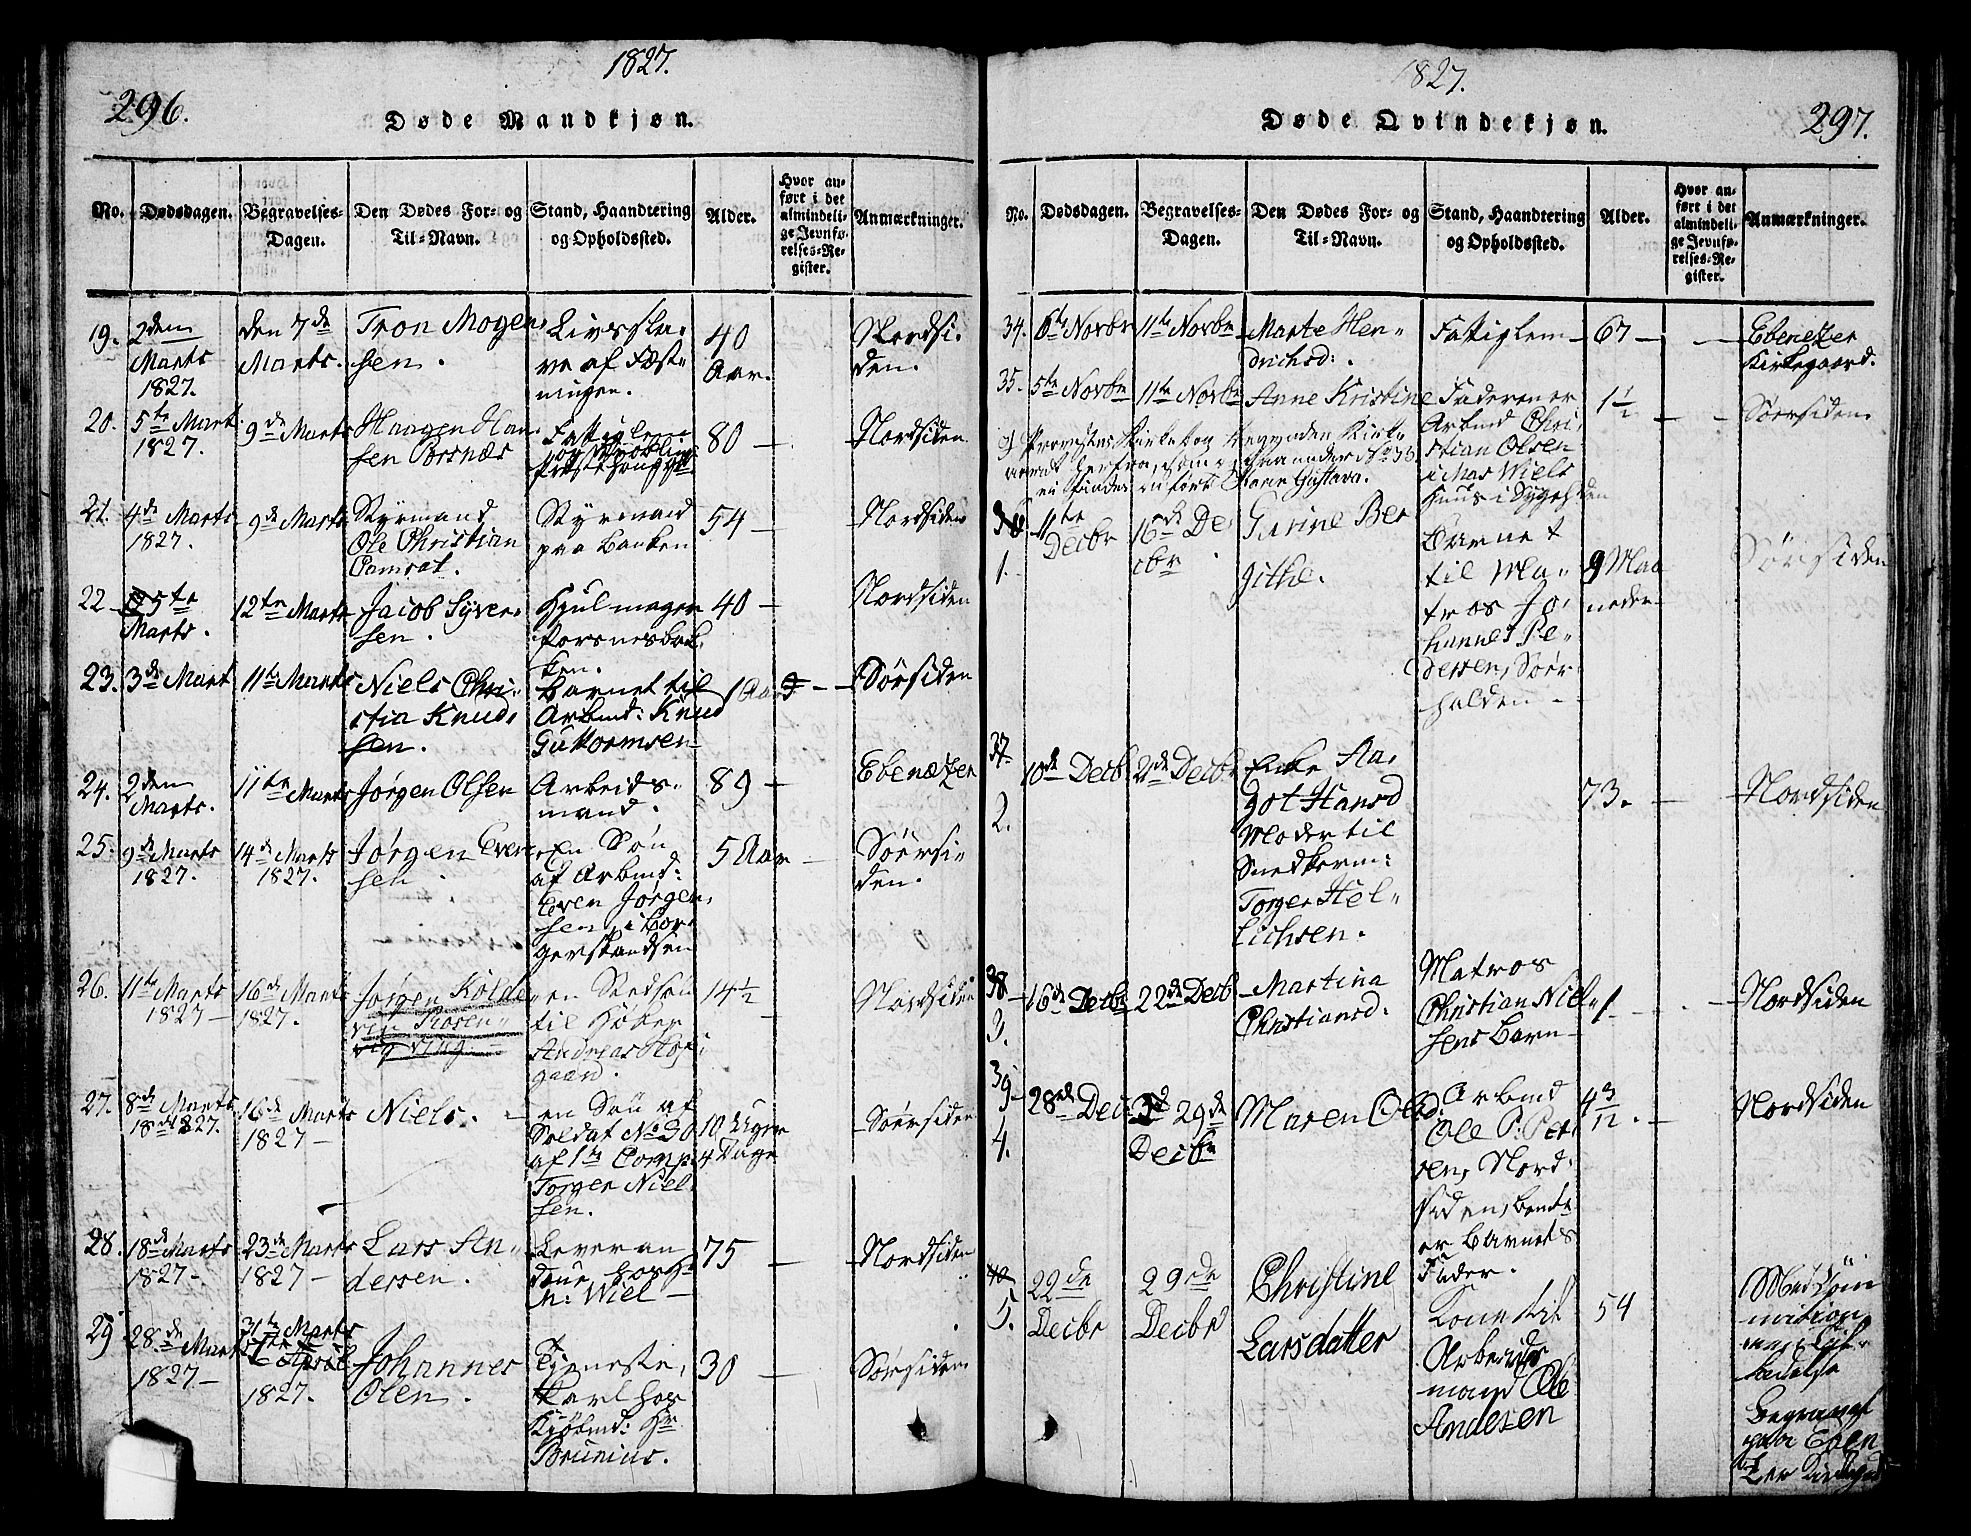 1827.
296.
Døde Mandkjøn.
No.
Dødsdagen.
Begravelses-
Dagen.
Den Dødes For- og
Til-Navn.
Stand, Haandtering
og Opholdssted.
Alder.
Hvor an-
ført i det
almindeli-
ge Jevnfø-
relses-Re-
gister.
Anmærkninger.
19. 2den
Marts
1827.
den 7de
Marts.
Tron Mogen-
sen.
Livssla-
ve af Fæst-
ningen.
40
Aar.
Nordsi-
den.
20. 5te Mart
1827.
9de Marts
Haagen Han-
sen Porsnæs
Fattiglem
80 —
Nordsiden
21. 4de Marts
1827.
9de Marts
Styrmand
Ole Christian
Camrat.
Styrmand
paa Banken
54 —
Nordsiden
22 5te
Marts.
12te Marts
Jacob Syver-
sen.
Hjulmager
Porsnesbak-
ken.
40 —
Nordsiden
23. 3de Mart
11te Marts
Niels Chri-
stia Knud-
sen.
Barnet til
Arbmd: Knud
Guttormsen
1 Aar
Sørsiden
24. 2den
Marts.
11te Marts
Jørgen Olsen
Arbeids-
mand.
89 —
Ebenæzer
25. 9de Marts
1827.
14de Marts
1827.
Jørgen Even-
sen.
en Søn
af Arbmd:
Even Jørgen-
sen, i Bor-
gerskandsen
5 Aar —
Søersi-
den.
26. 11te Marts
1827 —
16de Marts
1827.
Jørgen Kolde-
ven Rosen-
vig Ring
en Stedsøn
til Høker
Andreas Hof-
gaard.
14½
Nordsiden
27. 8de Marts
1827.
16de Marts
1827 —
Niels. —
en Søn af
Soldat No 90
af 1te Comp.
Torger Niel-
sen.
10 Uger
4 Dage
Søersiden
28. 18de Marts
1827 —
23de Marts
1827 —
Lars An-
dersen.
Leveran
hos Hr
M: Wiel —
75 —
Nordsiden
29 28de Marts
1827 —
31te Marts
April
1827.
Johannes
Olen.
Tjeneste-
karl hos
Kjøbmd: Hr
Brunius.
30 —
Sørsiden
1827.
297.
Døde Qvindekjøn.
No.
Dødsdagen.
Begravelses-
Dagen.
Den Dødes For- og
Til-Navn.
Stand, Haandtering
og Opholdssted.
Alder.
Hvor an-
ført i det
almindeli-
ge Jevnfø-
relses-Re-
gister.
Anmærkninger.
34. 6te Novbr
11te Novbr
Marte Hen-
drichsd:.
Fattiglem —
67 —
Ebenezer
Kirkegaard.
35. 5te Novbr
11te Novbr
Anne Kristine
Faderen er
Arbmd Chri-
stian Olsen
i Mas Wiels
Huus i Sygeh
1½
Søersiden
Provstens Kirkebog begynder
herfra, som No 35
ei findes anført Karen Gustava.
1.
11te
Decbr
16de De-
cbr
Gurine Ber
githe.
Barnet
til Ma-
tros Jo-
hannes Pe-
dersen, Søer
halden —
9 Maa
neder
Sørsiden
37
2.
10de Decbr
21de Decbr
Enke Aa-
got Hansd
Moder til
Snedkerm:
Torger Hel-
lichsen.
73. —
Nordsiden
38
3.
16de Decbr
22de Decbr
Martina
Christiansd.
Matros
Christian Niel-
sens Barn —
1
Nordsiden
39
4.
28de Decbr
29de
Decbr
Maren Olsd.
Arbmd
Ole P: Pet-
sen, Nord-
siden, bemte
er Barnets
Fader.
4 3/12.
Nordsiden
40
5.
22de
Decbr
29de
Decbr
Christine
Larsdatter
Kone til
Arbeids-
mand Ole
Andesen
54
Begravet
paa Eben
Ezer Kirkegd